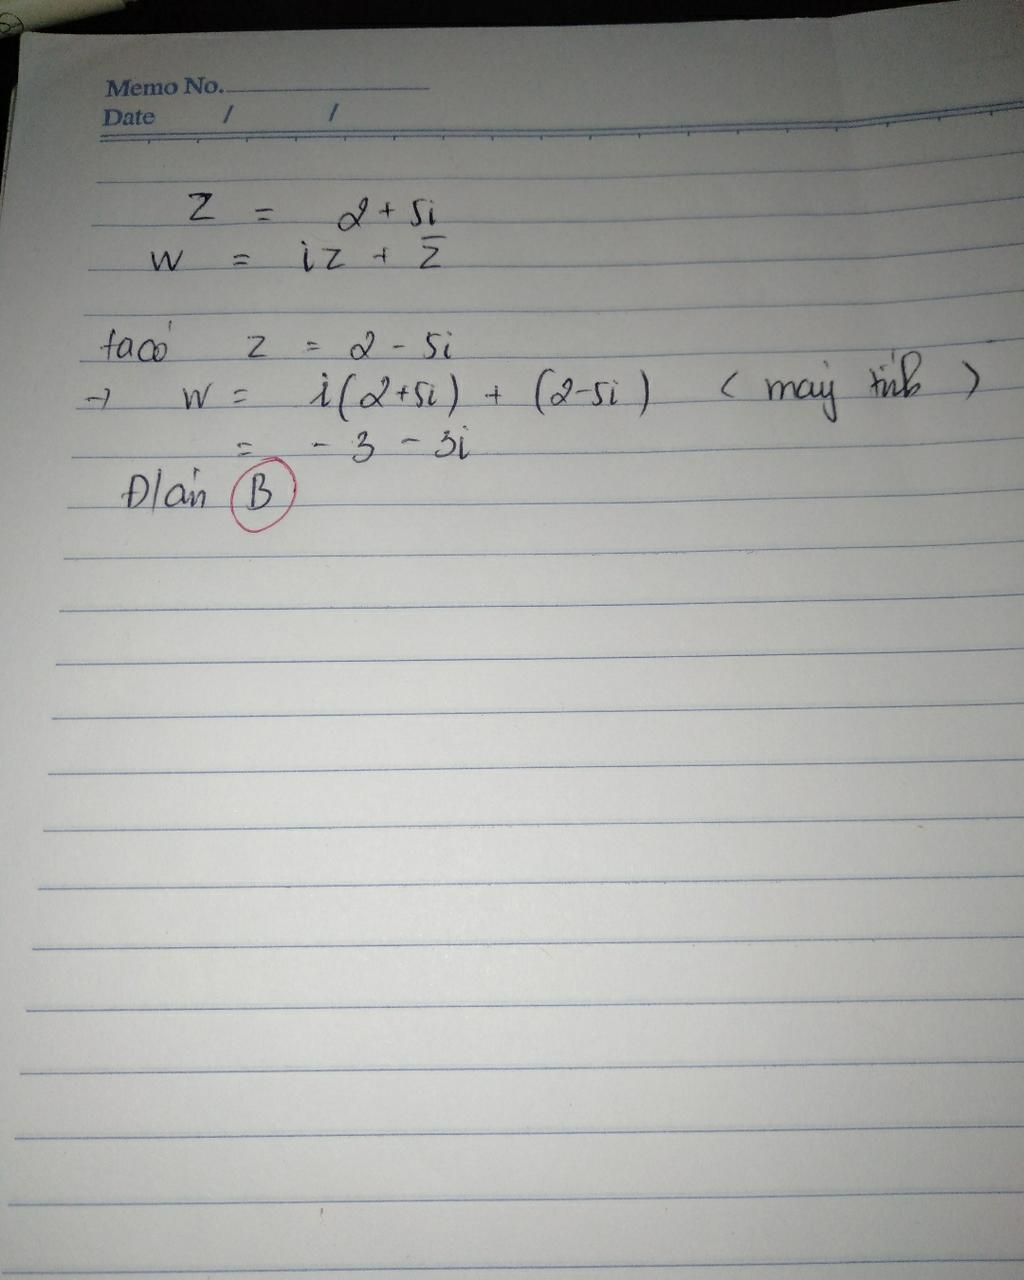 Memo No.
Date / /
Z = 2 + 5i
W = iz + z̅
ta có z = 2 - 5i
→ W = i(2+5i) + (2-5i) ( máy tính )
= - 3 - 3i
Đ/án B